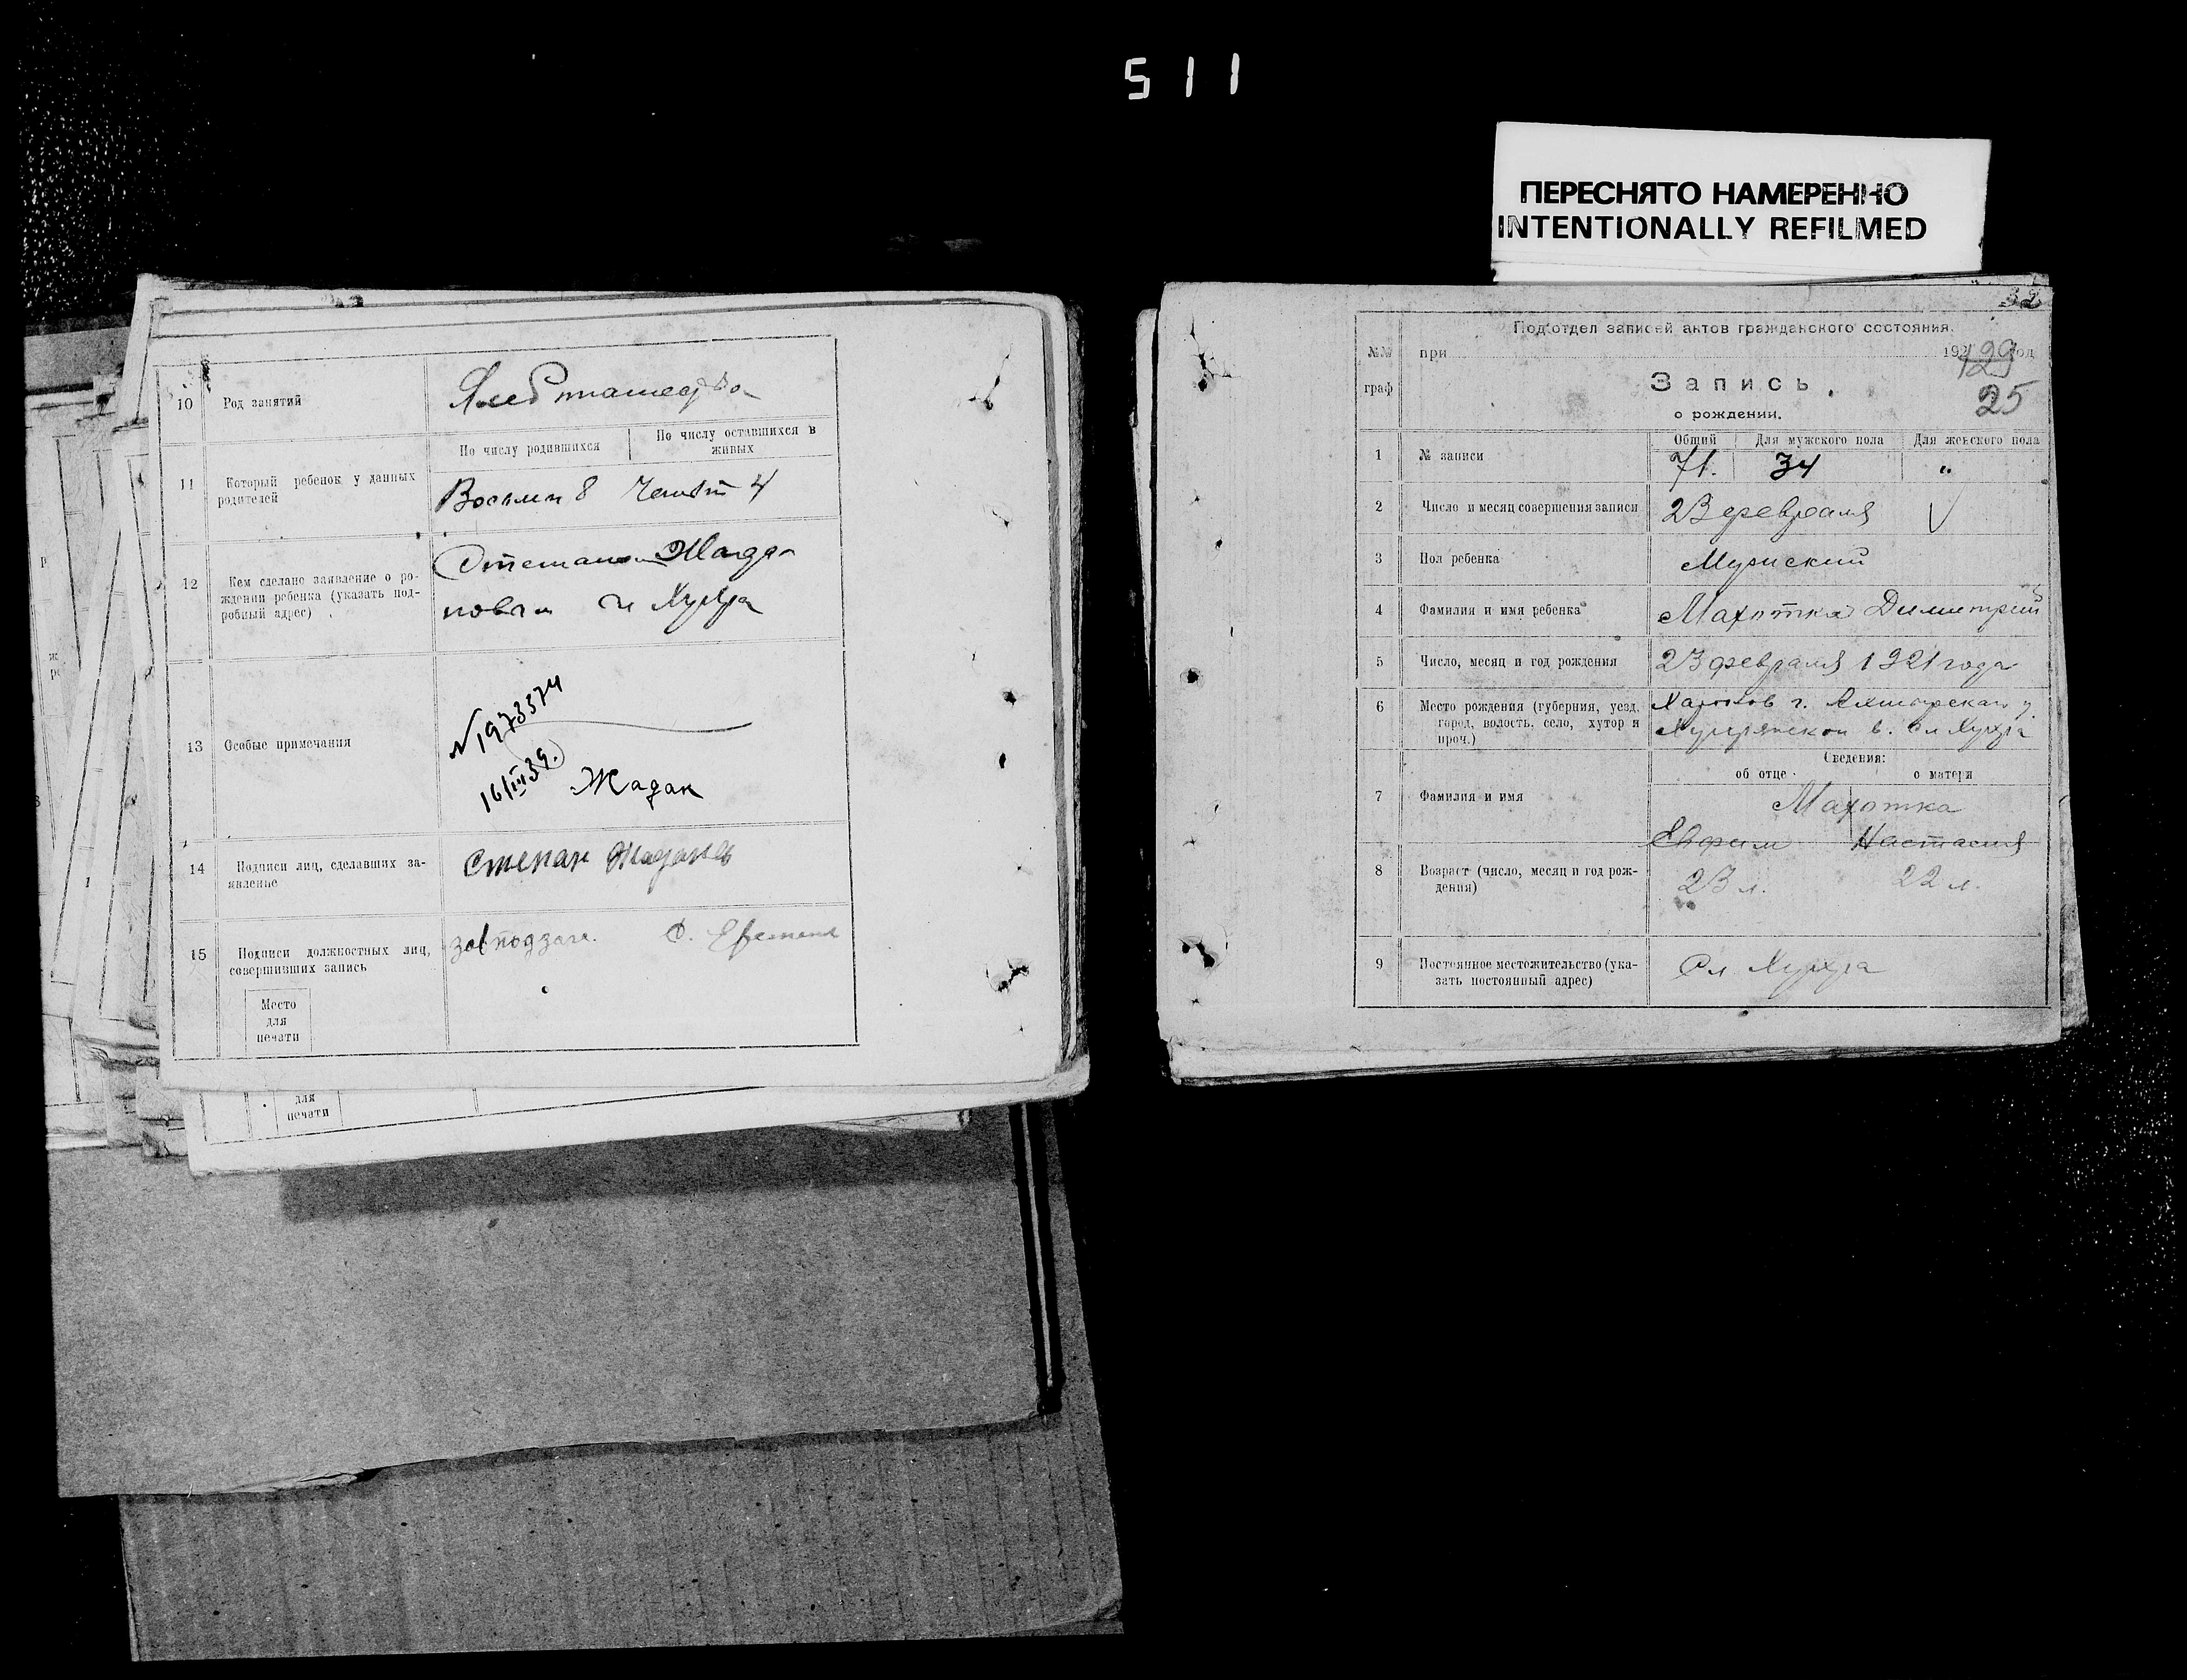 511
ПЕРЕСНЯТО НАМЕРЕННО
INTENTIONALLY REFILMED
10 Род занятий
11 Который ребенок у данных родителей
По числу родившихся По числу оставшихся в живых
Восьми 8 4
12 Кем сделано заявление о ро-
ждении ребенка (указать под-
робный адрес)
Хухра
13 Особые примечания
№1973374
16/III 39.
Жадан
14 Подписи лиц, сделавших за-
явление
Степан
15 Подписи должностных лиц,
совершивших запись
Место
для
печати
для
печати
32
Подотдел записей актов гражданского состояния.
№№ при 192 год
граф
129
Запись
25
о рождении.
Общий Для мужского пола Для женского пола
1 № записи 71. 34 "
2 Число и месяц совершения записи 23 февраля
3 Пол ребенка Мужский
4 Фамилия и имя ребенка Махотка Димитрий
5 Число, месяц и год рождения 23 февраля 1921 года
6 Место рождения (губерния, уезд,
город, волость, село, хутор и
проч.)
Харьков г. Ахтырская у.
в. Сл Хухра
Сведения:
об отце о матери
7 Фамилия и имя
Махотка
Евфим Настасия
8 Возраст (число, месяц и год рож-
дения)
23 л. 22 л.
9 Постоянное местожительство (ука-
зать постоянный адрес)
Сл Хухра